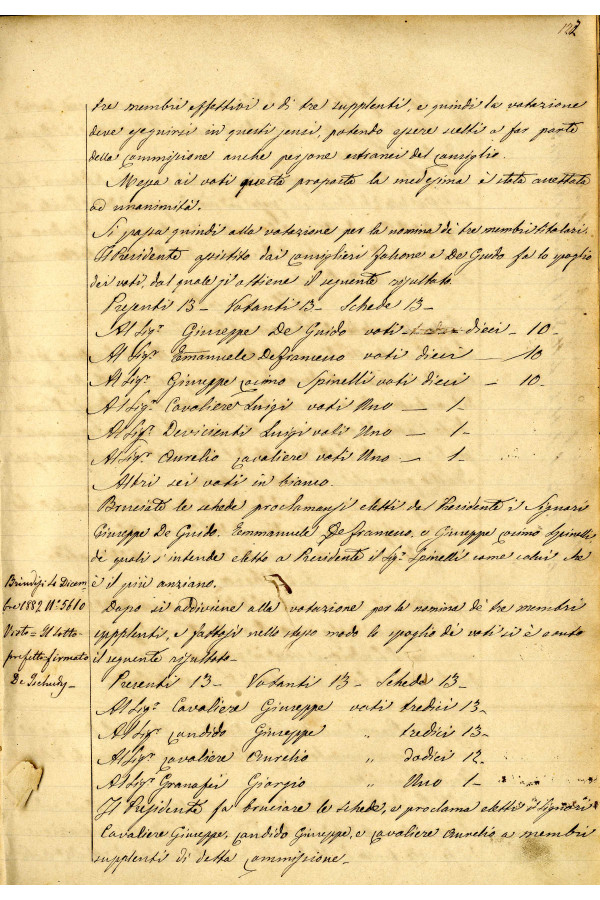 127
tre membri effettivi e di tre supplenti, e quindi la votazione
deve eseguirsi in questi sensi, potendo essere scelti a far parte
della Commissione anche persone estranei del Consiglio.
Messa ai voti questa proposta la medesima è stata accettata
ad unanimità.
Si passa quindi alla votazione per la nomina dè tre membri titolari.
Il Presidente assistito dai Consiglieri e De Guido fa lo spoglio
dei voti, dal quale si ottiene il seguente risultato.
Presenti 13 – Votanti 13 – Schede 13 –
Al Sig.r Giuseppe De Guido voti dieci – 10 –
Al Sig.r Emanuele Defrancesco voti dieci — 10
Al Sig.r Giuseppe Cosimo Spinelli voti dieci – 10 –
Al Sig.r Cavaliere Luigi voti Uno — 1 –
Al Sig.r Devicienti Luigi voti Uno — 1 –
Al Sig.r Aurelio Cavaliere voti Uno — 1 –
Altri sei voti in bianco.
Bruciate le schede proclamansi eletti dal Presidente i Signori
Giuseppe De Guido, Emmanuele Defrancesco, e Giuseppe Cosimo Spinelli,
dè quali s'intende eletto a Presidente il Sig.r Spinelli come colui che
è il più anziano.
Dopo si addiviene alla votazione per la nomina dè tre membri
supplenti, e fattosi nello stesso modo lo spoglio dè voti si è avuto
il seguente risultato –
Presenti 13 – Votanti 13 – Schede 13 –
Al Sig.r Cavaliere Giuseppe voti tredici 13 –
Al Sig.r Candido Giuseppe " tredici 13 –
Al Sig.r Cavaliere Aurelio " dodici 12 –
Al Sig.r Granafei Giorgio " Uno 1 –
Il Presidente fa bruciare le schede, e proclama eletti i Signori
Cavaliere Giuseppe, Candido Giuseppe, e Cavaliere Aurelio a membri
supplenti di detta Commissione –
Brindisi 14 Dicem
bre 1882 N.º 5610
Visto = Il Sotto
prefetto firmato
De Tschudy –